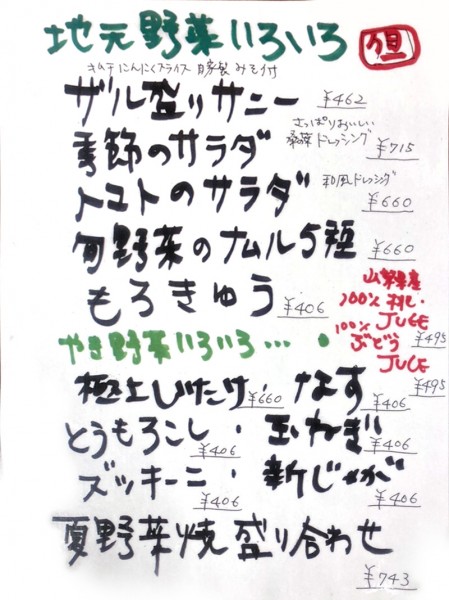 地元野菜いろいろ
キムチにんにくスライス自家製みそ付
ザル盛りサニー ¥462
さっぱりおいしい
ドレッシング
季節のサラダ ¥715
和風ドレッシング
トマトのサラダ ¥660
旬野菜のナムル5種 ¥660
もろきゅう ¥406
山梨県産
100%
100% JUCE ¥495
ぶどう
JUCE ¥495
やき野菜いろいろ…
極上しいたけ ¥660 なす ¥406
とうもろこし ¥406 玉ねぎ ¥406
ズッキーニ ¥406 新じゃが ¥406
夏野菜焼盛り合わせ
¥743